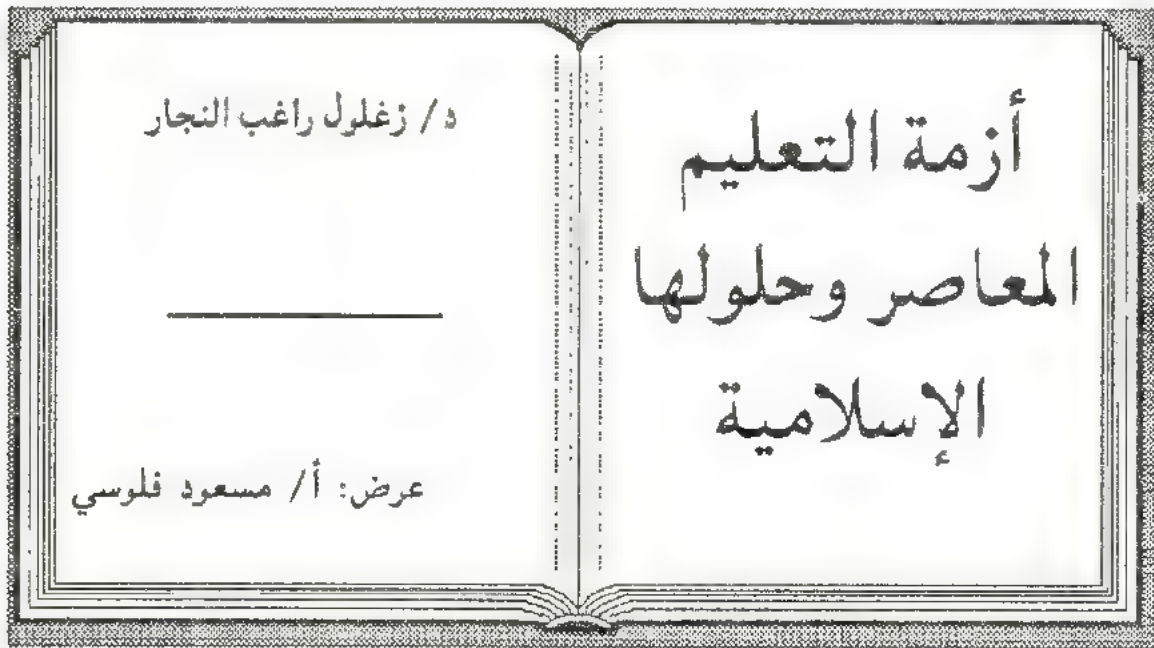 أزمة التعليم
المعاصر وحلولها
الإسلامية
د/ زغلول راغب النجار
عرض: أ/ مسعود فلوسي